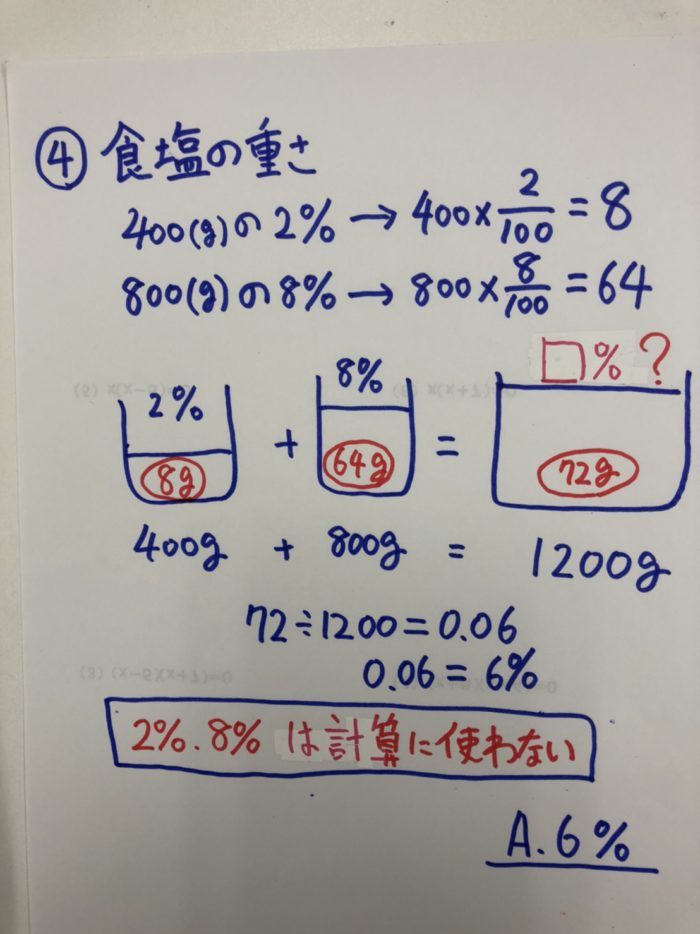 ④ 食塩の重さ
400(g)の2% → 400×2/100=8
800(g)の8% → 800×8/100=64
2% 8% □%?
8g + 64g = 72g
400g + 800g = 1200g
72÷1200=0.06
0.06=6%
2%.8% は計算に使わない
A.6%